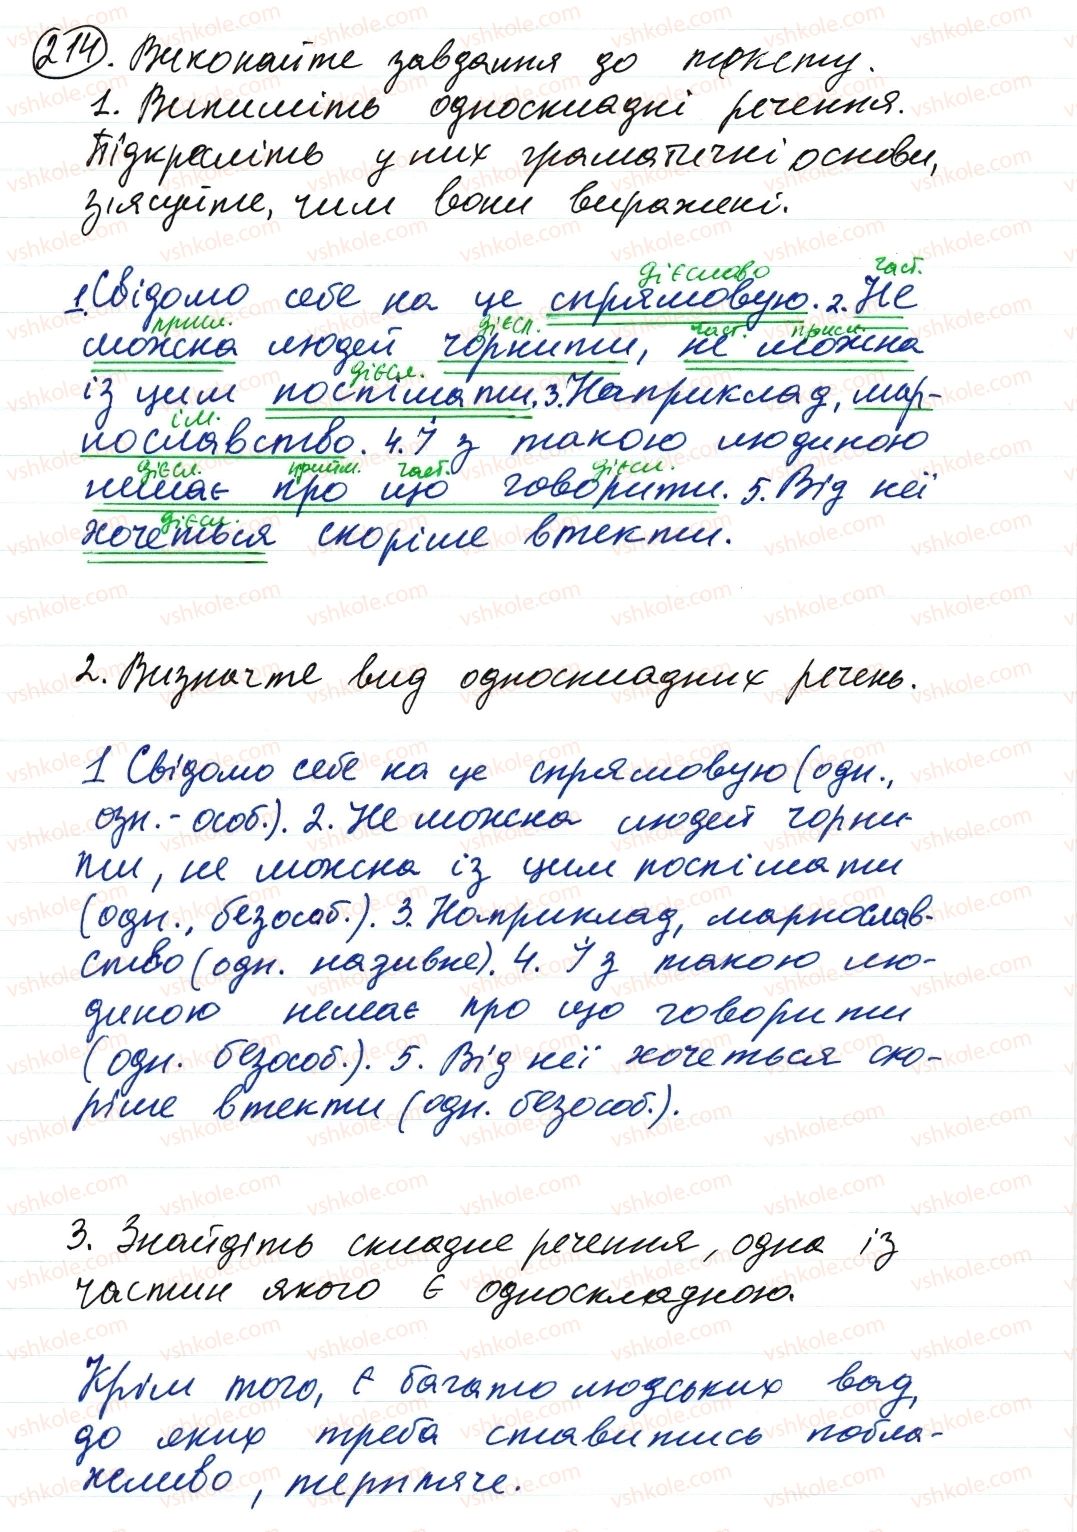 214. Виконайте завдання до тексту.
1. Випишіть односкладні речення.
Підкресліть у них граматичні основи,
з'ясуйте, чим вони виражені.
дієслово част.
1. Свідомо себе на це спрямовую. 2. Не
присл. дієсл. част. присл.
можна людей чорнити, не можна
дієсл.
із цим поспішати. 3. Наприклад, мар-
ім.
нославство. 4. І з такою людиною
дієсл. прийм. част. дієсл.
немає про що говорити. 5. Від неї
дієсл.
хочеться скоріше втекти.
2. Визначте вид односкладних речень.
1 Свідомо себе на це спрямовую (одн.,
озн.-особ.). 2. Не можна людей чорни-
ти, не можна із цим поспішати
(одн., безособ.). 3. Наприклад, марнослав-
ство (одн. називне). 4. І з такою лю-
диною немає про що говорити
(одн. безособ.). 5. Від неї хочеться ско-
ріше втекти (одн. безособ.).
3. Знайдіть складне речення, одна із
частин якого є односкладною.
Крім того, є багато людських вад,
до яких треба ставитись побла-
жливо, терпляче.